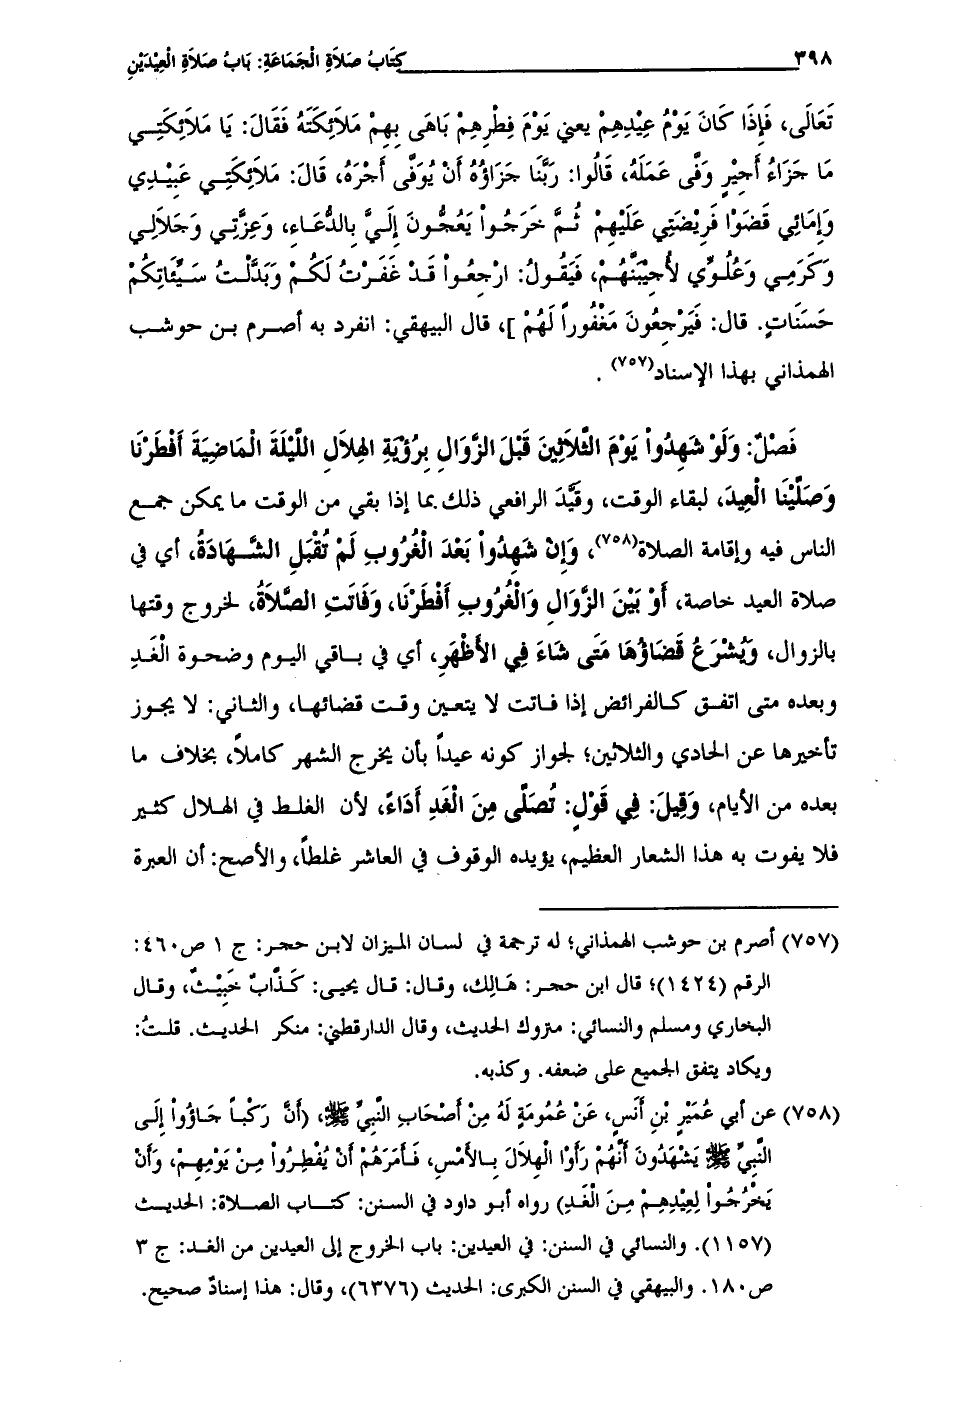 ٣٩٨ كِتَابُ صَلاَةِ الْجَمَاعَةِ: بَابُ صَلاَةِ الْعِيْدَيْنِ
تَعَالَى، فَإِذَا كَانَ يَوْمُ عِيْدِهِمْ يعني يَوْمَ فِطْرِهِمْ بَاهَى بِهِمْ مَلاَئِكَتَهُ فَقَالَ: يَا مَلاَئِكَتِي
مَا جَزَاءُ أَجِيْرٍ وَفَّى عَمَلَهُ، قَالُوا: رَبَّنَا جَزَاؤُهُ أَنْ يُوَفَّى أَجْرَهُ، قَالَ: مَلاَئِكَتِي عَبِيْدِي
وَإِمَائِي قَضَوْا فَرِيْضَتِي عَلَيْهِمْ ثُمَّ خَرَجُواْ يَعُجُّونَ إِلَيَّ بِالدُّعَاءِ، وَعِزَّتِي وَجَلاَلِي
وَكَرَمِي وَعُلُوِّي لأُجِيْبَنَّهُمْ، فَيَقُولُ: ارْجِعُواْ قَدْ غَفَرْتُ لَكُمْ وَبَدَّلْتُ سَيِّئَاتِكُمْ
حَسَنَاتٍ. قال: فَيَرْجِعُونَ مَغْفُوراً لَهُمْ ]، قال البيهقي: انفرد به أصرم بن حوشب
الهمذاني بهذا الإسناد(٧٥٧) .
فَصْلٌ: وَلَوْ شَهِدُواْ يَوْمَ الثَّلاَثِينَ قَبْلَ الزَّوَالِ بِرُؤْيَةِ الهِلاَلِ اللَّيْلَةَ الْمَاضِيَةَ أَفْطَرْنَا
وَصَلَّيْنَا الْعِيدَ، لبقاء الوقت، وقَيَّدَ الرافعي ذلك بما إذا بقي من الوقت ما يمكن جمع
الناس فيه وإقامة الصلاة(٧٥٨)، وَإِنْ شَهِدُواْ بَعْدَ الْغُرُوبِ لَمْ تُقْبَلِ الشَّهَادَةُ، أي في
صلاة العيد خاصة، أَوْ بَيْنَ الزَّوَالِ وَالْغُرُوبِ أَفْطَرْنَا، وَفَاتَتِ الصَّلاَةُ، لخروج وقتها
بالزوال، وَيُشْرَعُ قَضَاؤُهَا مَتَى شَاءَ فِي الأَظْهَرِ، أي في باقي اليوم وضحوة الْغَدِ
وبعده متى اتفق كالفرائض إذا فاتت لا يتعين وقت قضائها، والثاني: لا يجوز
تأخيرها عن الحادي والثلاثين؛ لجواز كونه عيداً بأن يخرج الشهر كاملاً، بخلاف ما
بعده من الأيام، وَقِيلَ: فِي قَوْلٍ: تُصَلَّى مِنَ الْغَدِ أَدَاءً، لأن الغلط في الهلال كثير
فلا يفوت به هذا الشعار العظيم، يؤيده الوقوف في العاشر غلطاً، والأصح: أن العبرة
(٧٥٧) أصرم بن حوشب الهمذاني؛ له ترجمة في لسان الميزان لابن حجر: ج ١ ص٤٦٠:
الرقم (١٤٢٤)؛ قال ابن حجر: هَالِك، وقال: قال يحيى: كَذَّابٌ خَبِيْثٌ، وقال
البخاري ومسلم والنسائي: متروك الحديث، وقال الدارقطني: منكر الحديث. قلتُ:
ويكاد يتفق الجميع على ضعفه. وكذبه.
(٧٥٨) عن أبي عُمَيْرِ بْنِ أَنَسٍ، عَنْ عُمُومَةٍ لَهُ مِنْ أَصْحَابِ النَّبِيِّ ﷺ، (أَنَّ رَكْباً جَاؤُواْ إِلَى
النَّبِيِّ ﷺ يَشْهَدُونَ أَنَّهُمْ رَأَوْا الْهِلاَلَ بِالأَمْسِ، فَأَمَرَهُمْ أَنْ يُفْطِرُواْ مِنْ يَوْمِهِمْ، وَأَنْ
يَخْرُجُواْ لِعِيْدِهِمْ مِنَ الْغَدِ) رواه أبو داود في السنن: كتاب الصلاة: الحديث
(١١٥٧). والنسائي في السنن: في العيدين: باب الخروج إلى العيدين من الغد: ج ٣
ص١٨٠. والبيهقي في السنن الكبرى: الحديث (٦٣٧٦)، وقال: هذا إسنادٌ صحيح.